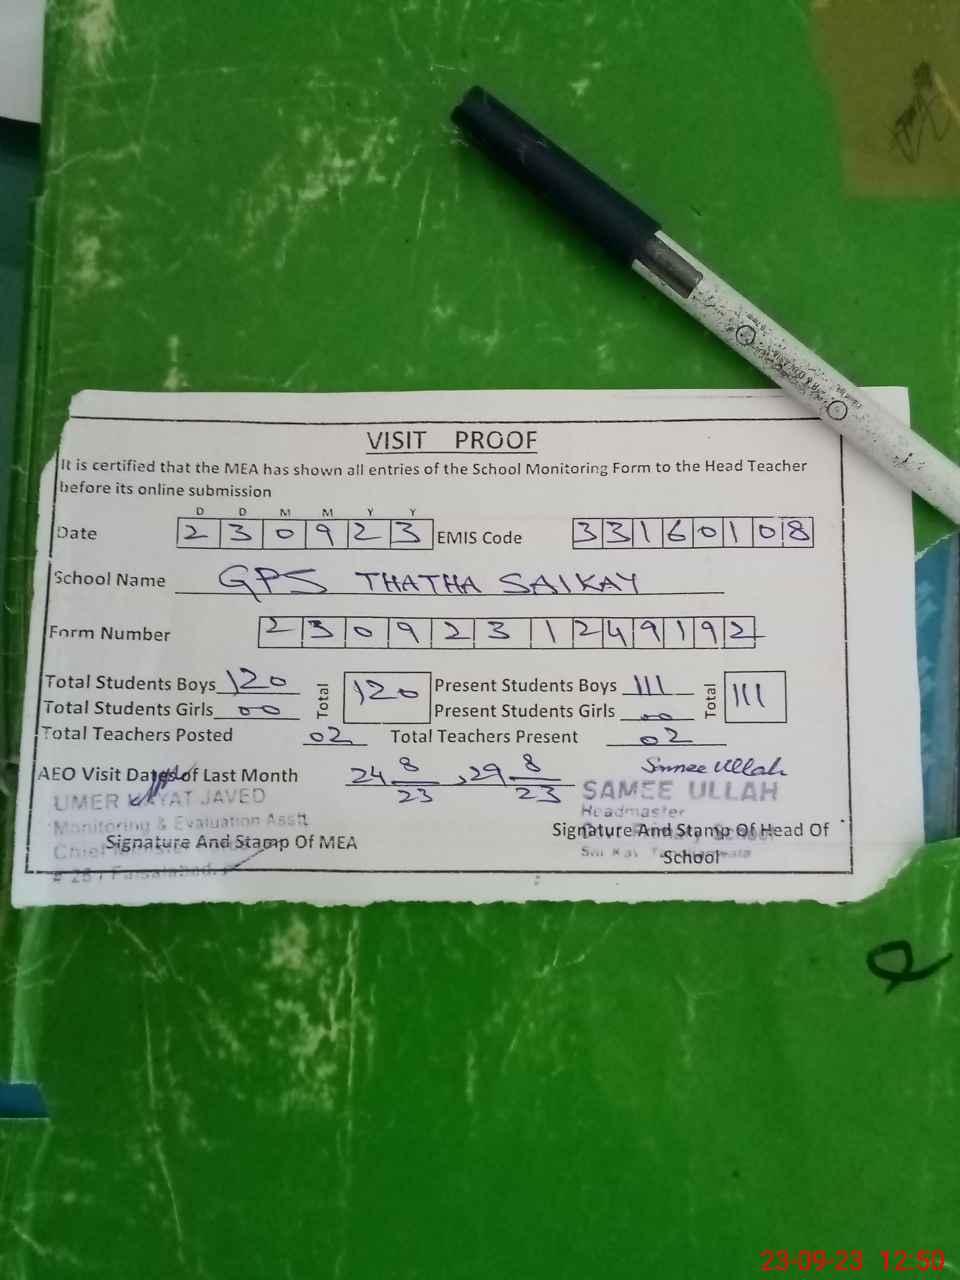 VISIT PROOF
It is certified that the MEA has shown all entries of the School Monitoring Form to the Head Teacher
before its online submission
D D M M Y Y
Date 2 3 0 9 2 3 EMIS Code 3 3 1 6 0 1 0 8
School Name GPS THATHA SAIKAY
Form Number 2 3 0 9 2 3 1 2 4 9 1 9 2
Total Students Boys 120 Total 120 Present Students Boys 111 Total 111
Total Students Girls 00 Present Students Girls 00
Total Teachers Posted 02 Total Teachers Present 02
AEO Visit Dates of Last Month 24 8/23, 29 8/23 Samee Ullah
UMER HAYAT JAVED SAMEE ULLAH
Monitoring & Evaluation Asstt Headmaster
Signature And Stamp Of MEA Signature And Stamp Of Head Of
School
Faisalabad.
23-09-23 12:50